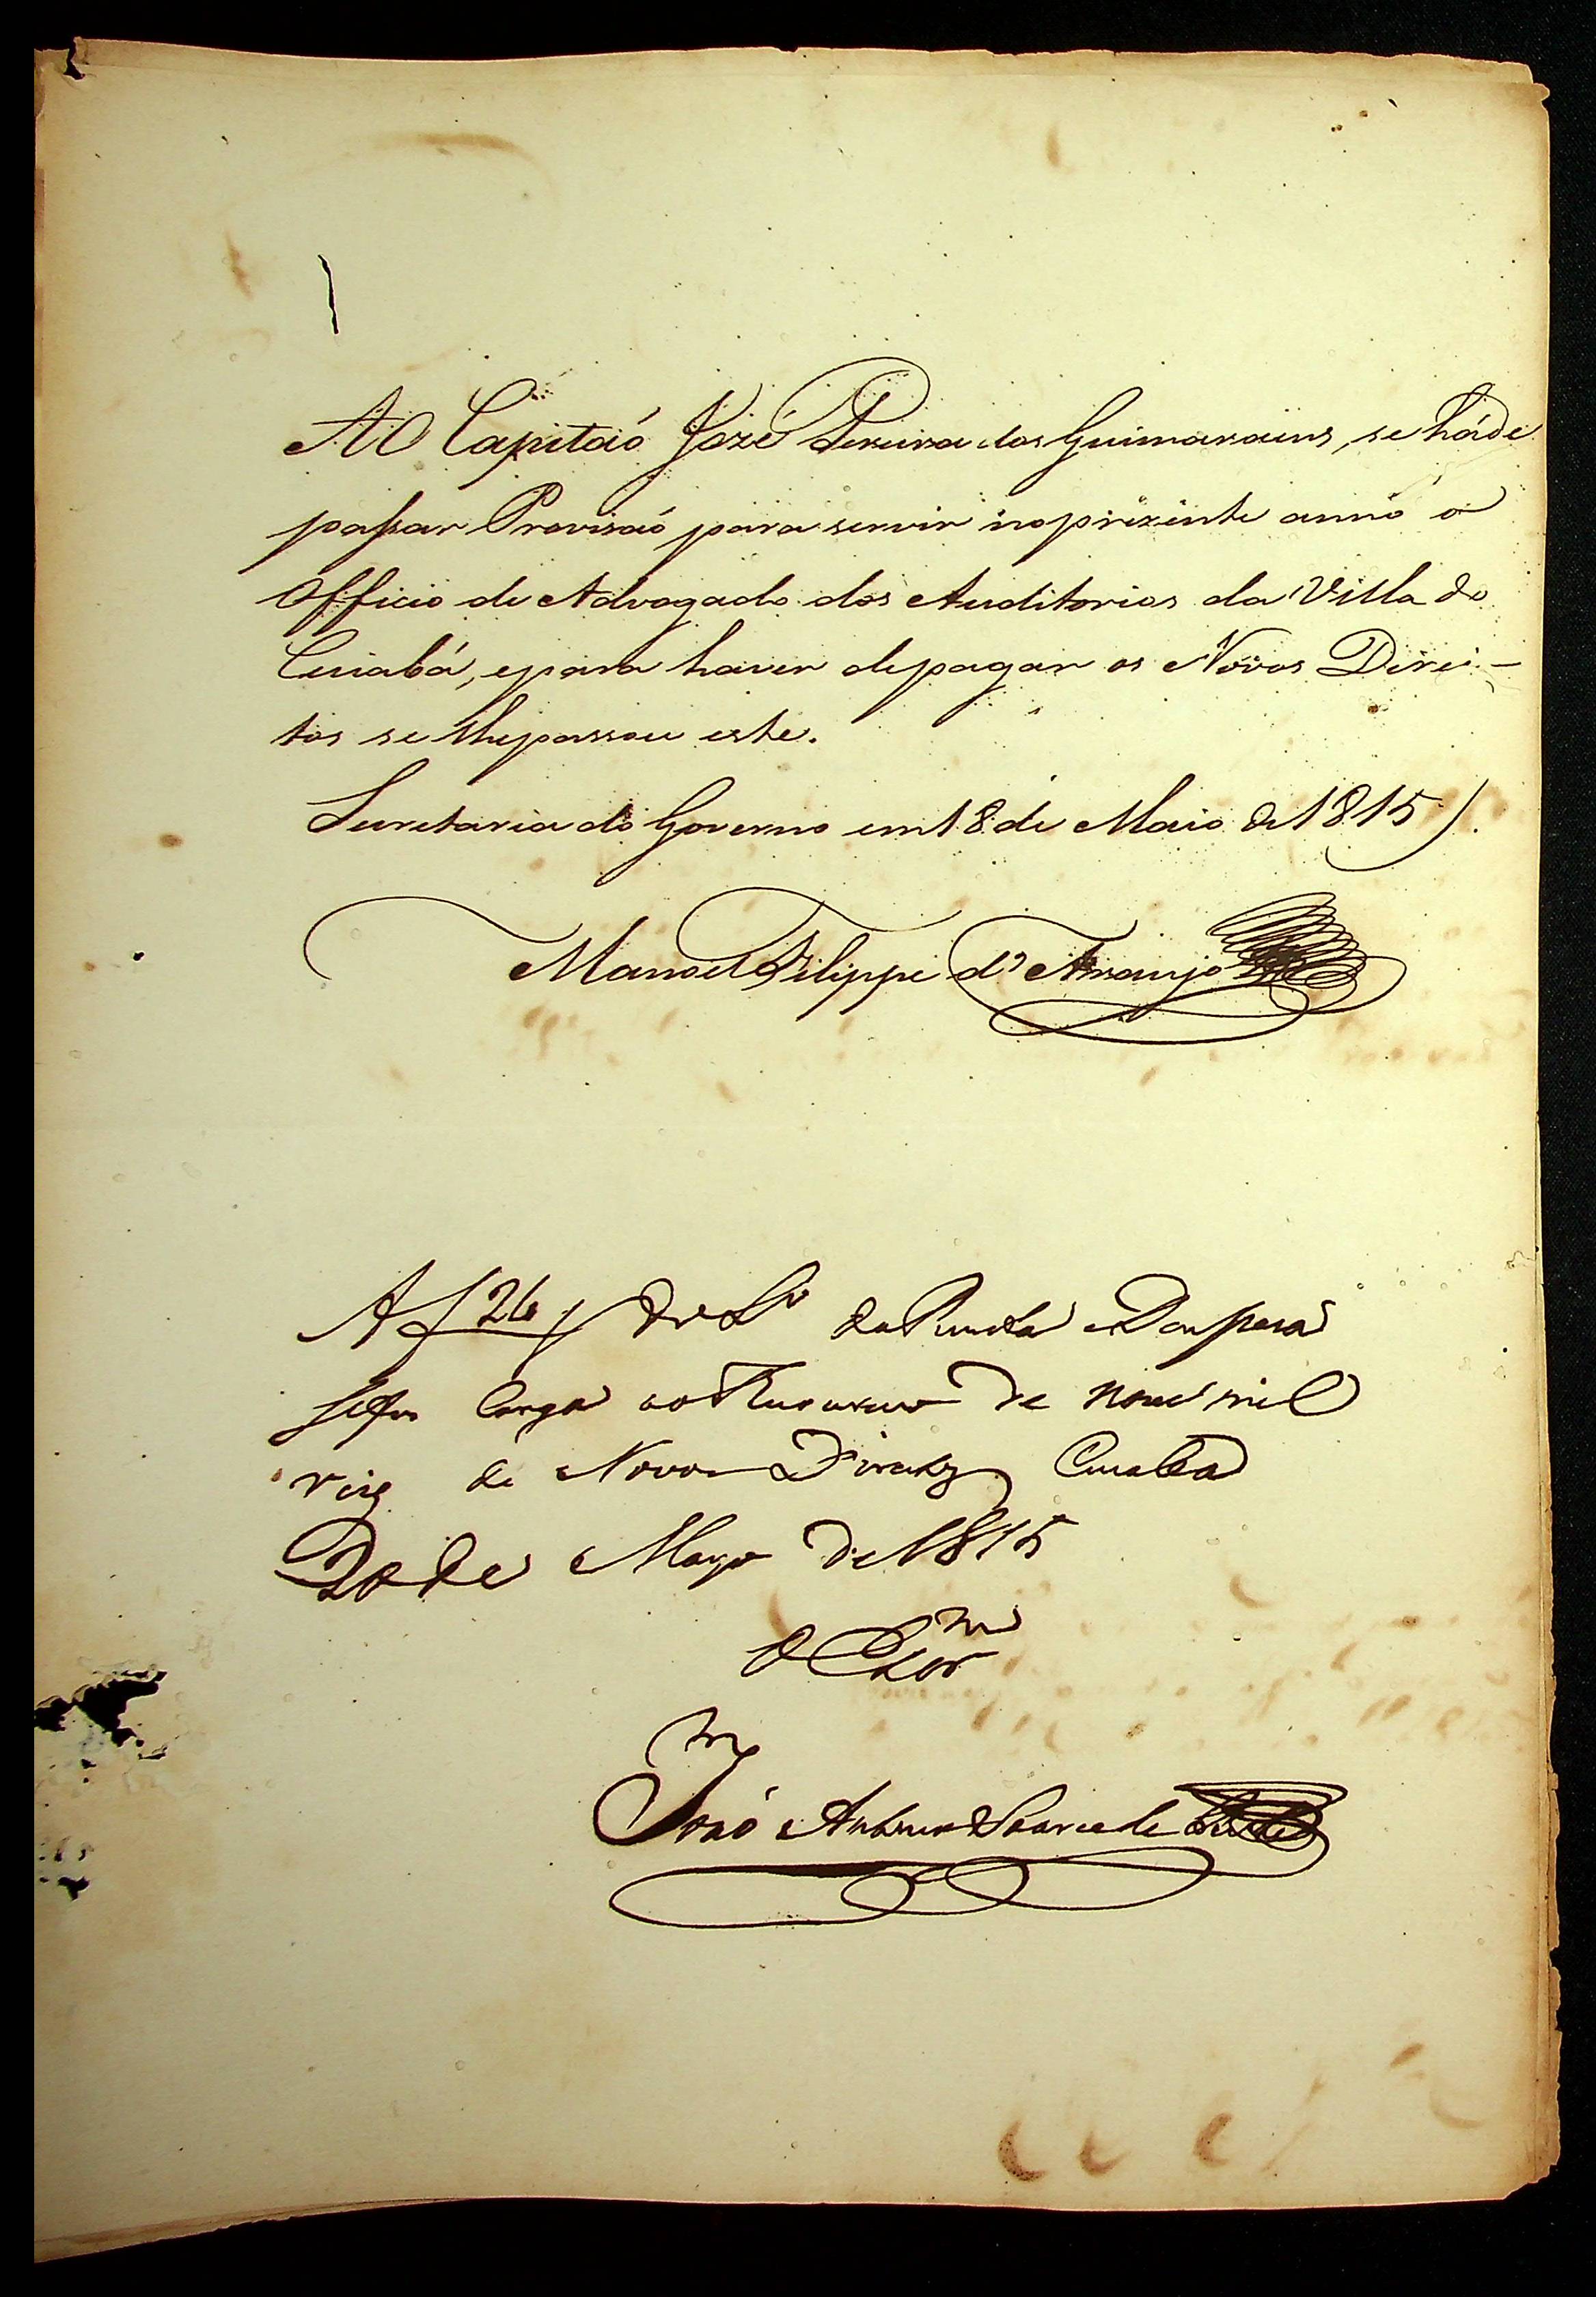 AO Capitaõ Jozé Pereira dos Guimaraens, se háde
passar Provisaõ para servir no prezente anno o
Officio de Advogado dos Auditorios da Villa do
Cuiabá, epara haver depagar os Novos Direi-
tos se lhepassou este.
Secretaria do Governo em 18 de Maio de 1815
Manoel Filippe d'Araujo
A f 26 do Lº da Receita e Despesa
Carga ao de nove mil
reis de Novos Direitos Cuiaba
20 de Mayo de 1815
O
João Antonio Soares de